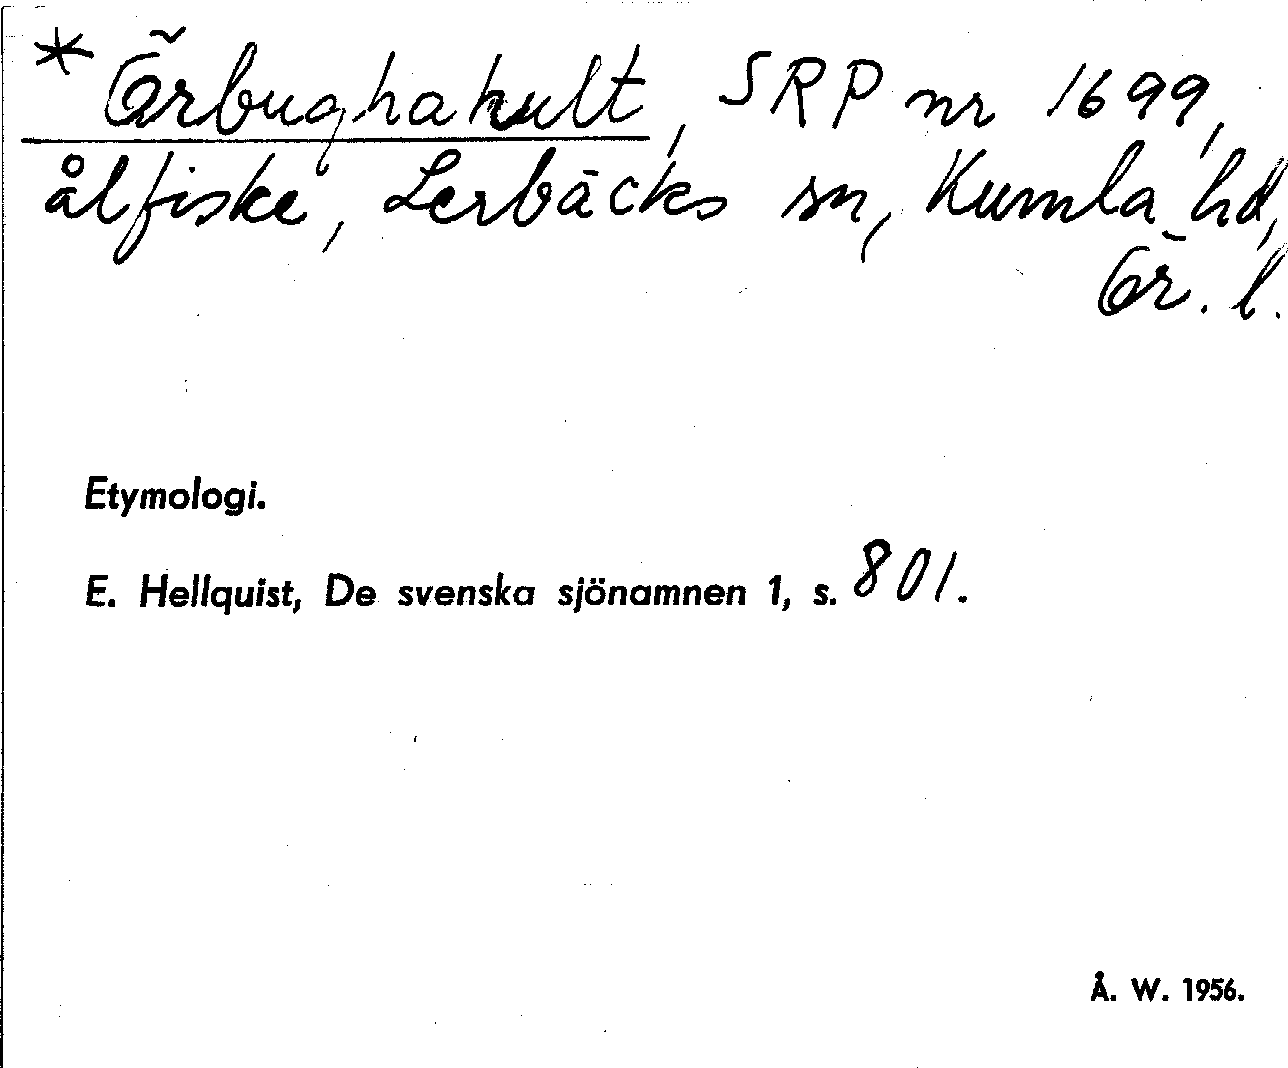 * Örbughahult, SRP nr 1699,
ålfiske, Lerbäcks sn, Kumla hd,
Ör. l.
Etymologi.
E. Hellquist, De svenska sjönamnen 1, s. 801.
Å. W. 1956.